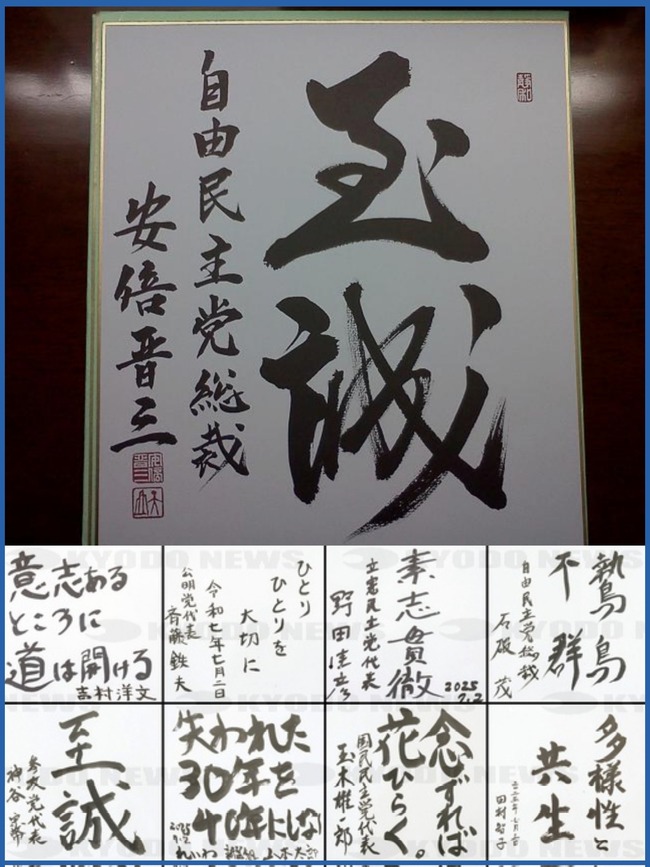 至誠
自由民主党総裁
安倍晋三
KYODO NEWS
意志ある
ところに
道は開ける
吉村洋文
ひとり
ひとりを
大切に
令和七年七月二日
公明党代表
斉藤鉄夫
素志貫徹
立憲民主党代表
野田佳彦
2025
7.2
鷙鳥
不群
自由民主党総裁
石破 茂
至誠
参政党代表
神谷宗幣
失われた
30年を
40年にしな
れいわ
念ずれば
花ひらく。
国民民主党代表
玉木雄一郎
多様性と
共生
二〇二五年七月二日
田村智子